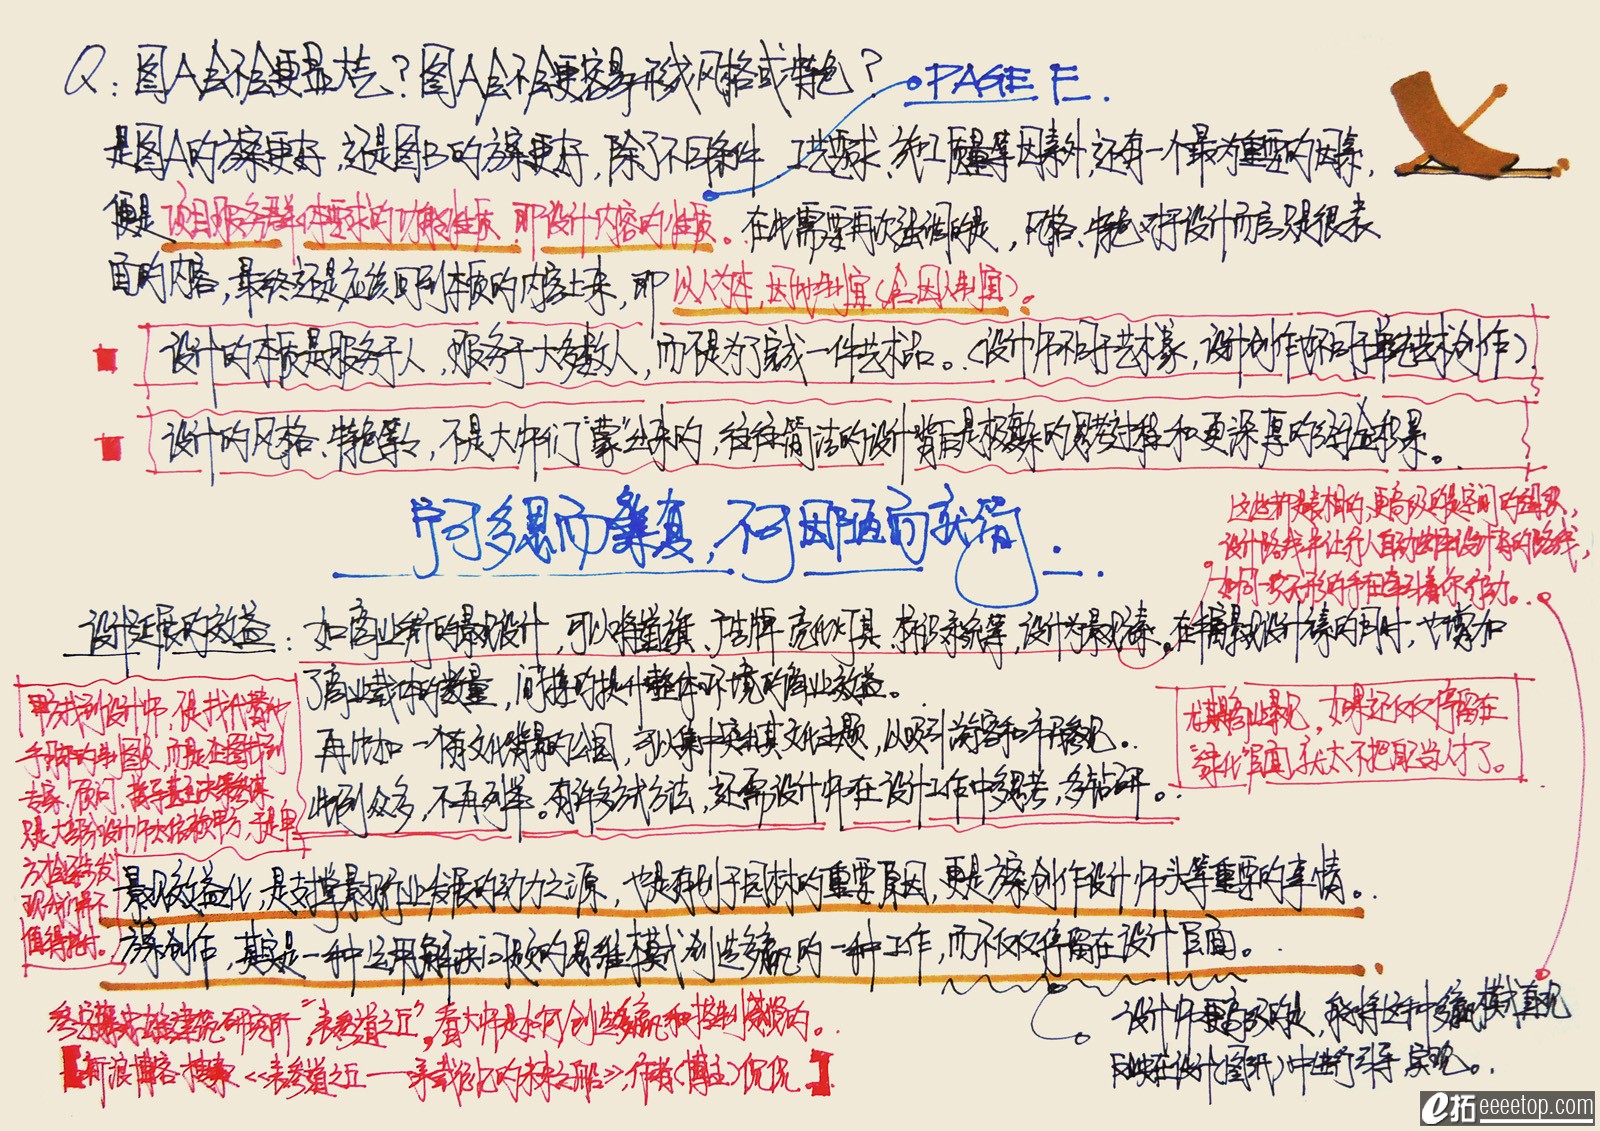 Q：图A会不会更显大气？图A会不会更容易形成风格或特色？
PAGE E.
是图A的方案更好，还是图B的方案更好，除了不同条件 工艺要求、施工质量等因素外，还有一个最为重要的因素，
便是 项目服务群体要求的功能性质，即设计内容的性质。在此需要再次强调的是，风格、特色对于设计而言只是很表
面的内容，最终还是应该回到本质的内容上来，即 以人为本，因地制宜（含因人制宜）。
设计的本质是服务于人，服务于大多数人，而不是为了完成一件艺术品。（设计师不同于艺术家，设计创作也不同于单纯艺术创作）
设计的风格、特色等，不是大师们“蒙”出来的，往往简洁的设计背后是极复杂的思考过程和更深厚的经验积累。
宁可多思而繁复，不可因陋而就简．
这些都是表相的，更高级的是空间的组织，
设计路线并让行人自动走出设计者的路线，
如同一支无形的手在牵引着你行动。
设计延展的效益：如商业街的景观设计，可以将道旗、广告牌、亮化灯具、标识系统等，设计为景观元素。在丰富景观设计元素的同时，也增加
了商业载体的数量，间接的提升整体环境的商业效益。
再比如一个有文化背景的公园，可以集中突出其文化主题，以吸引游客和市民参观。
此例众多，不再列举。有许多方式方法，还需设计师在设计工作中多思考，多钻研。
尤其商业景观，如果还仅仅停留在
“绿化”层面，就太不把自己当人才了。
甲方找到设计师，不是找
手 的制图员，而是 找到
专家、顾问，
是大部分设计师太依赖甲方，于是甲
方才会 发
现你们并不
值得托付。
景观效益化，是支撑景观行业发展的动力之源，也是有别于园林的重要原因，更是方案创作设计师头等重要的事情。
方案创作，其实是一种运用解决问题的思维模式创造多赢的一种工作，而不仅仅停留在设计层面。
参考安藤忠雄建筑研究所“表参道之丘”，看大师是如何创造多赢和控制 的。
【新浪博客 搜索《表参道之丘——承载记忆的未来之船》，作者（博主）倪倪】
设计师更高级的是，能将这种多赢模式直观
反映在设计（图纸）中进行引导实现。
e拓 eeeetop.com